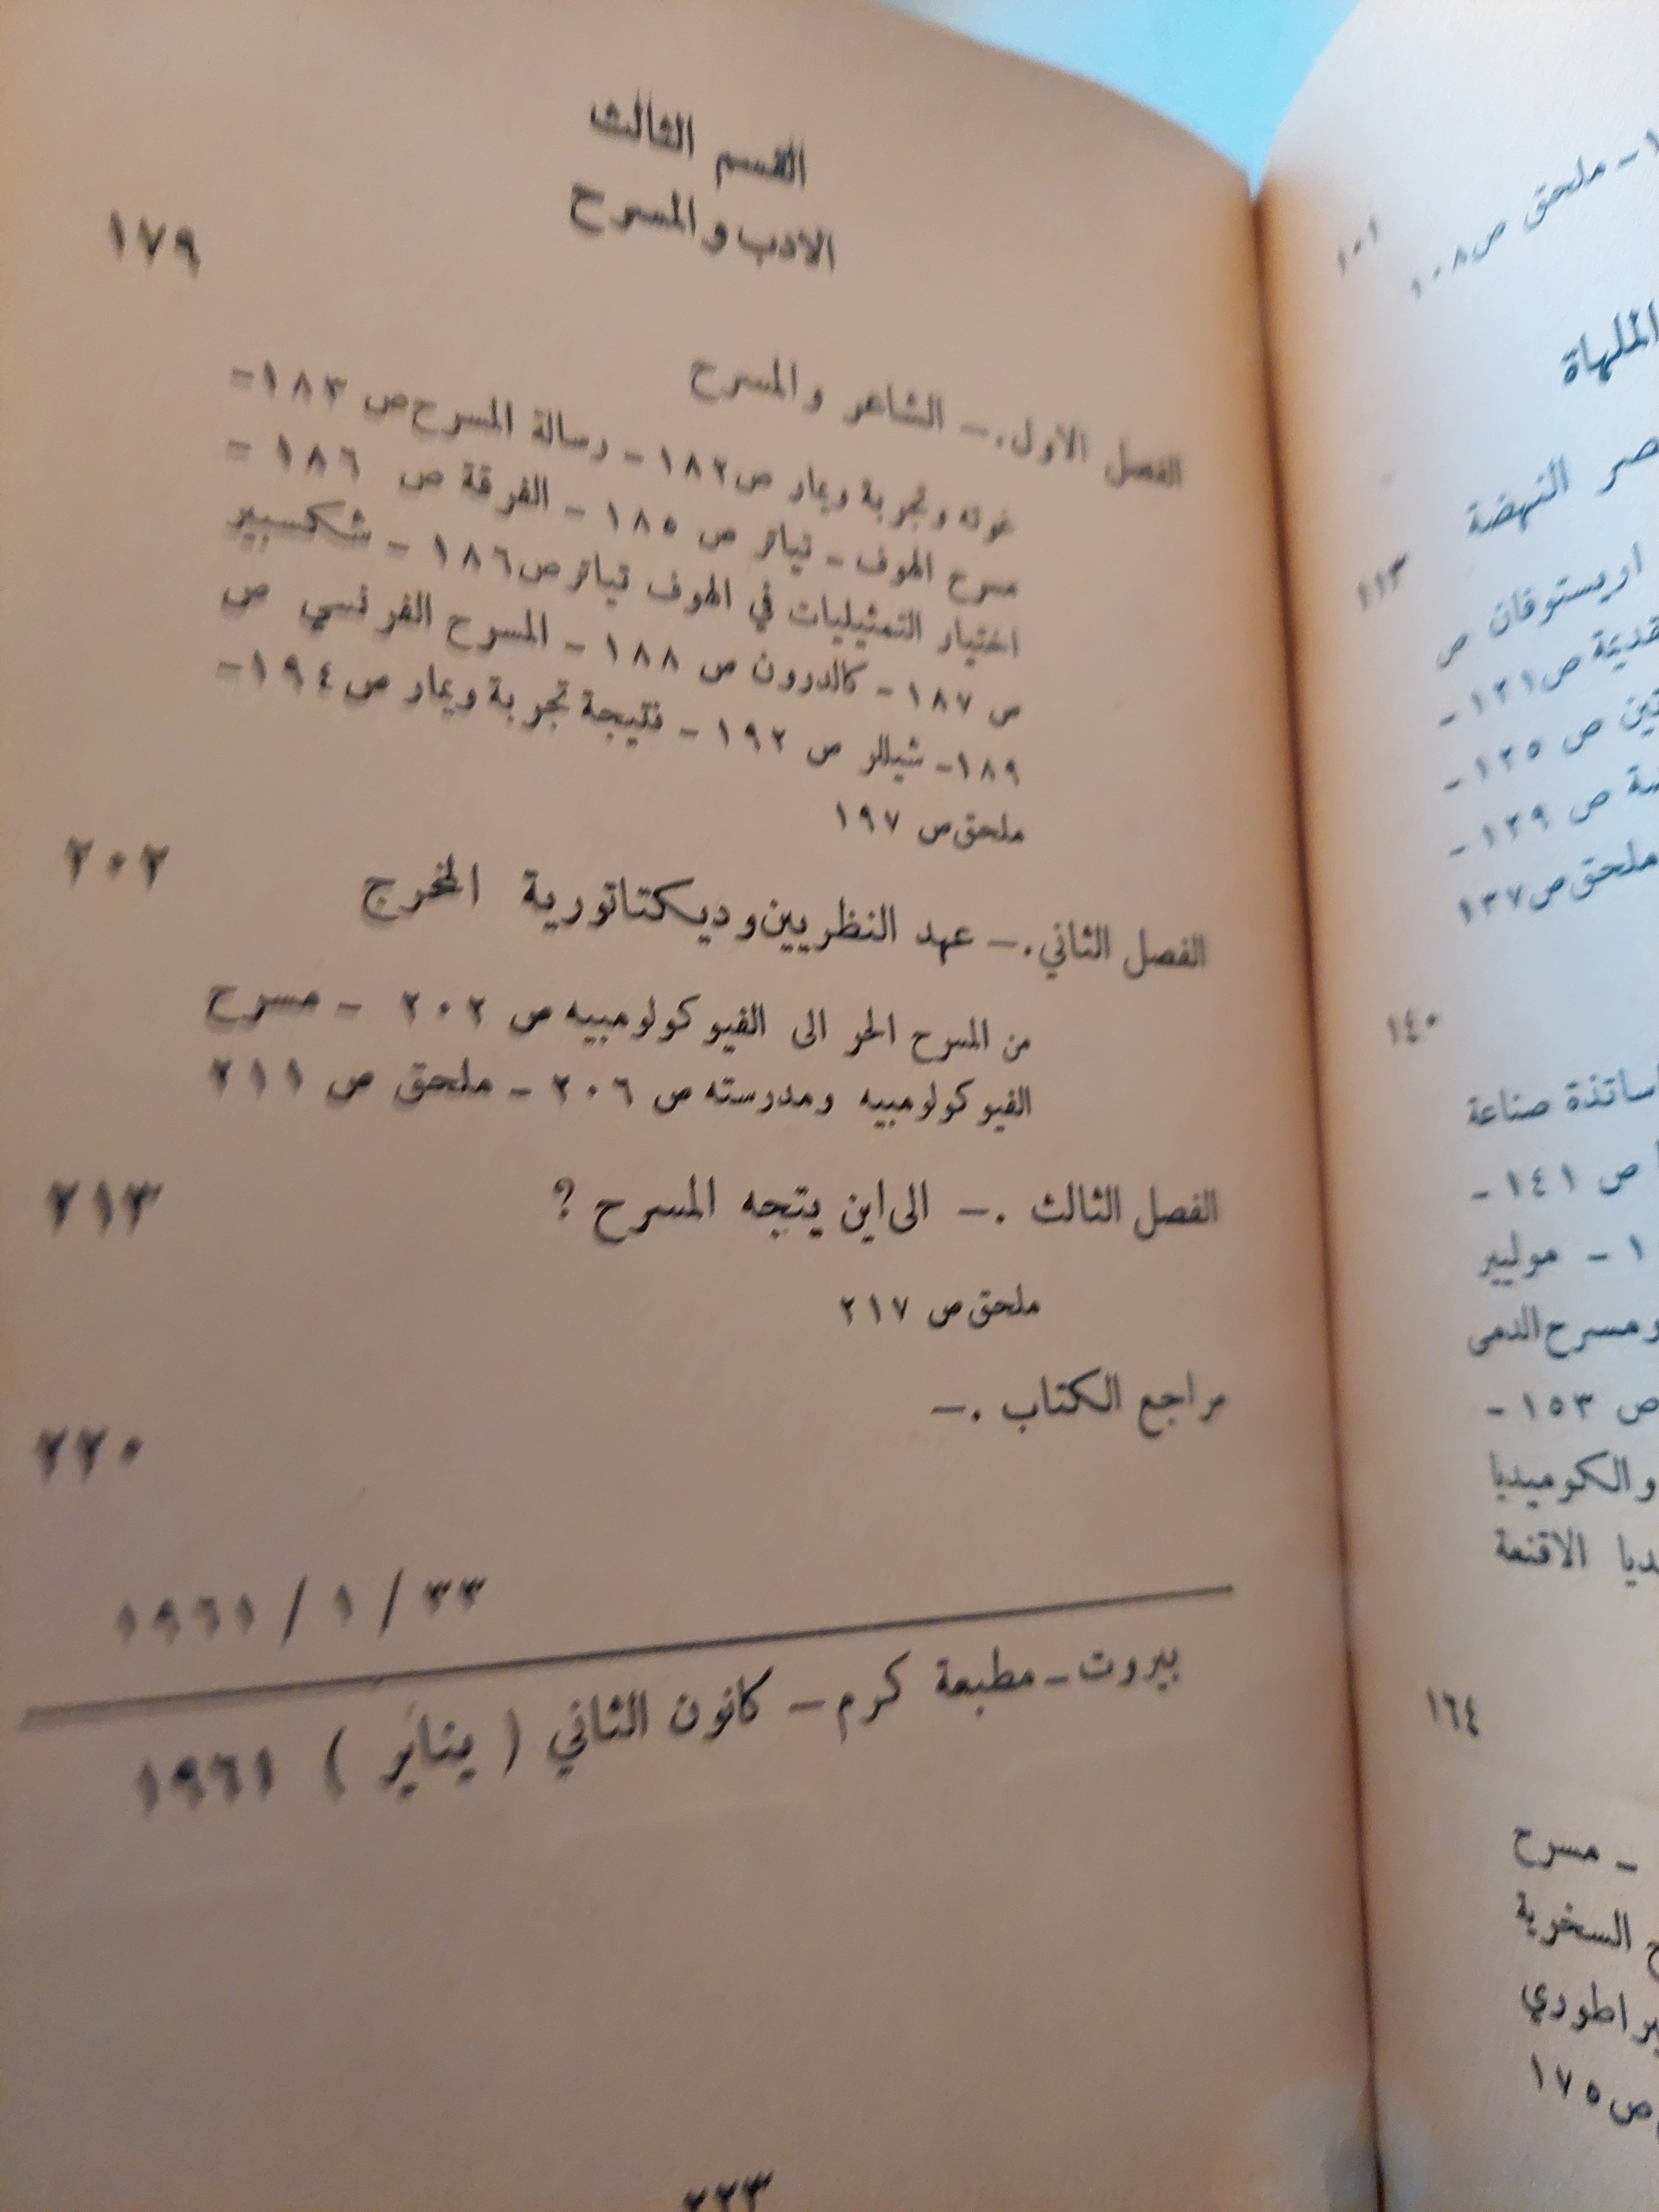 القسم الثالث
الادب والمسرح
١٧٩
الفصل الاول .— الشاعر والمسرح
غوته وتجربة ويمار ص ١٨٢ – رسالة المسرح ص ١٨٣ –
مسرح الهوف – تياتر ص ١٨٥ – الفرقة ص ١٨٦ –
اختيار التمثيليات في الهوف تياتر ص ١٨٦ – شكسبير
ص ١٨٧ – كالدرون ص ١٨٨ – المسرح الفرنسي ص
١٨٩ – شيللر ص ١٩٢ – نتيجة تجربة ويمار ص ١٩٤ –
ملحق ص ١٩٧
الفصل الثاني .— عهد النظريين وديكتاتورية المخرج
٢٠٢
من المسرح الحر الى الفيو كولومبييه ص ٢٠٢ – مسرح
الفيو كولومبييه ومدرسته ص ٢٠٦ – ملحق ص ٢١١
الفصل الثالث .— الى اين يتجه المسرح ؟
٢١٣
ملحق ص ٢١٧
مراجع الكتاب .—
٢٢٠
٣٣ / ١ / ١٩٦١
بيروت – مطبعة كرم – كانون الثاني ( يناير ) ١٩٦١
٢٢٣
١٠١
– ملحق ص ١٠٨
الملهاة
النهضة
١١٣
اريستوفان ص
ص ١٢١ –
ص ١٢٥ –
ص ١٢٩ –
ملحق ص ١٣٧
١٤٠
صناعة
ص ١٤١ –
– موليير
ومسرح الدمى
ص ١٥٣ –
والكوميديا
الاقنعة
١٦٤
– مسرح
السخرية
ص ١٧٥